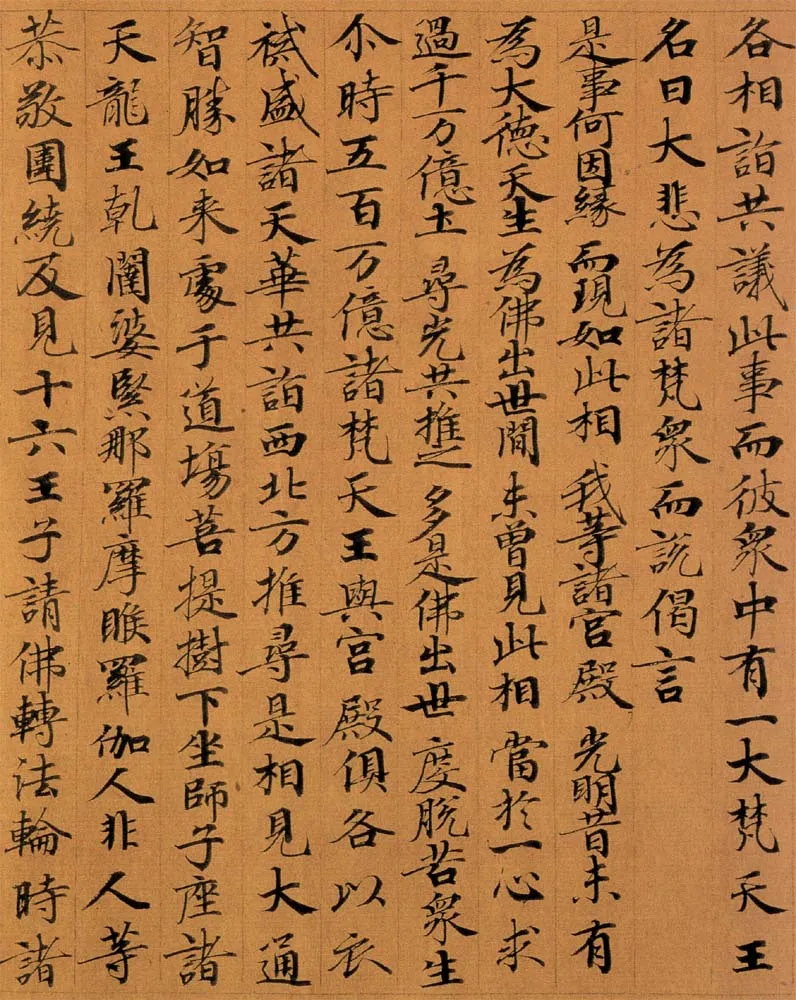 各相詣共議此事而彼衆中有一大梵天王
名曰大悲為諸梵衆而說偈言
是事何因縁 而現如此相 我等諸宮殿 光明昔未有
為大德天生 為佛出世間 未曾見此相 當於一心求
過千万億土 尋光共推之 多是佛出世 度脫苦衆生
尒時五百万億諸梵天王與宮殿俱各以衣
祴盛諸天華共詣西北方推尋是相見大通
智勝如来處于道場菩提樹下坐師子座諸
天龍王乹闥婆緊那羅摩睺羅伽人非人等
恭敬圍繞及見十六王子請佛轉法輪時諸